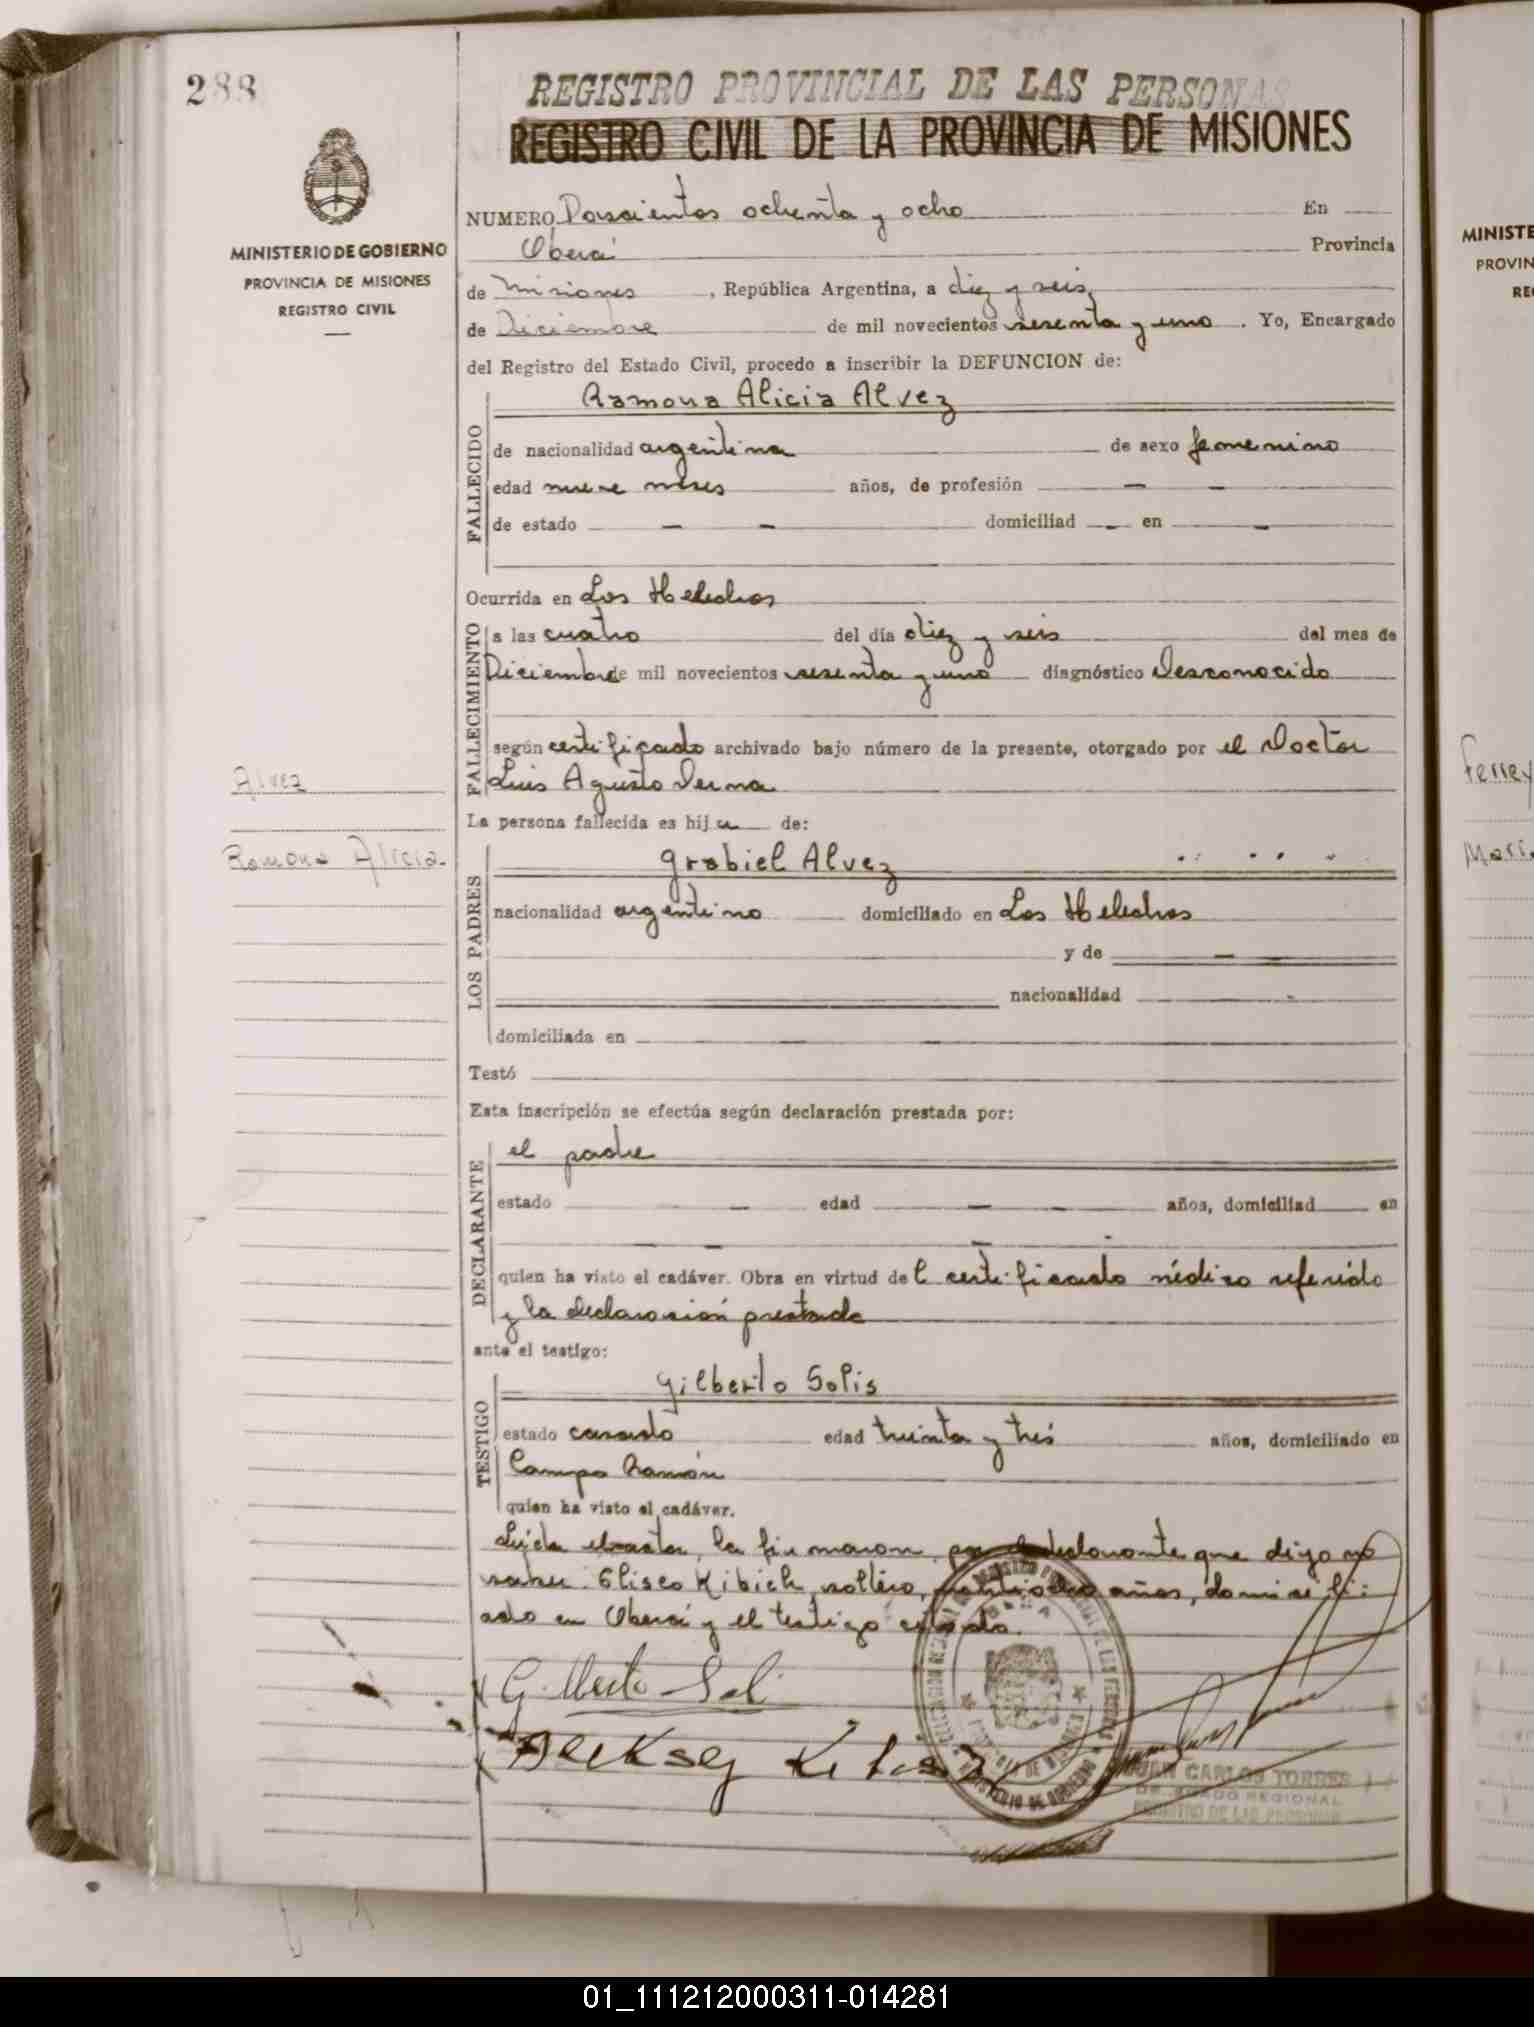 288
REGISTRO PROVINCIAL DE LAS PERSONAS
REGISTRO CIVIL DE LA PROVINCIA DE MISIONES
MINISTERIO DE GOBIERNO
PROVINCIA DE MISIONES
REGISTRO CIVIL
NUMERO Doscientos ochenta y ocho En
Oberá Provincia
de Misiones, República Argentina, a diez y seis
de Diciembre de mil novecientos sesenta y uno. Yo, Encargado
del Registro del Estado Civil, procedo a inscribir la DEFUNCION de:
FALLECIDO
Ramona Alicia Alvez
de nacionalidad argentina de sexo femenino
edad nueve meses años, de profesión — —
de estado — — domiciliad — en —
Ocurrida en Los Helechos
FALLECIMIENTO
a las cuatro del día diez y seis del mes de
Diciembre de mil novecientos sesenta y uno diagnóstico Desconocido
según certificado archivado bajo número de la presente, otorgado por el Doctor
Luis Agusto Derna
Alvez
Ramona Alicia.
La persona fallecida es hija de:
LOS PADRES
Grabiel Alvez
nacionalidad argentino domiciliado en Los Helechos
y de —
nacionalidad -
domiciliada en — — —
Testó
Esta inscripción se efectúa según declaración prestada por:
DECLARANTE
el padre
estado — edad — — años, domiciliad en
— — -
quien ha visto el cadáver. Obra en virtud del certificado médico referido
y la declaración prestada
ante el testigo:
TESTIGO
Gilberto Solis
estado casado edad treinta y tres años, domiciliado en
Campo Ramón
quien ha visto el cadáver.
Leída el acta, la firmaron, por el declarante que dijo no
saber Eliseo Kibich, soltero, años, domicili-
ado en Oberá y el testigo citado.
Gilberto Sol
Kibis
JUAN CARLOS TORRES
REGIONAL
REGISTRO DE LAS PERSONAS
MINISTE
PROVIN
RE
Ferrey
01_111212000311-014281